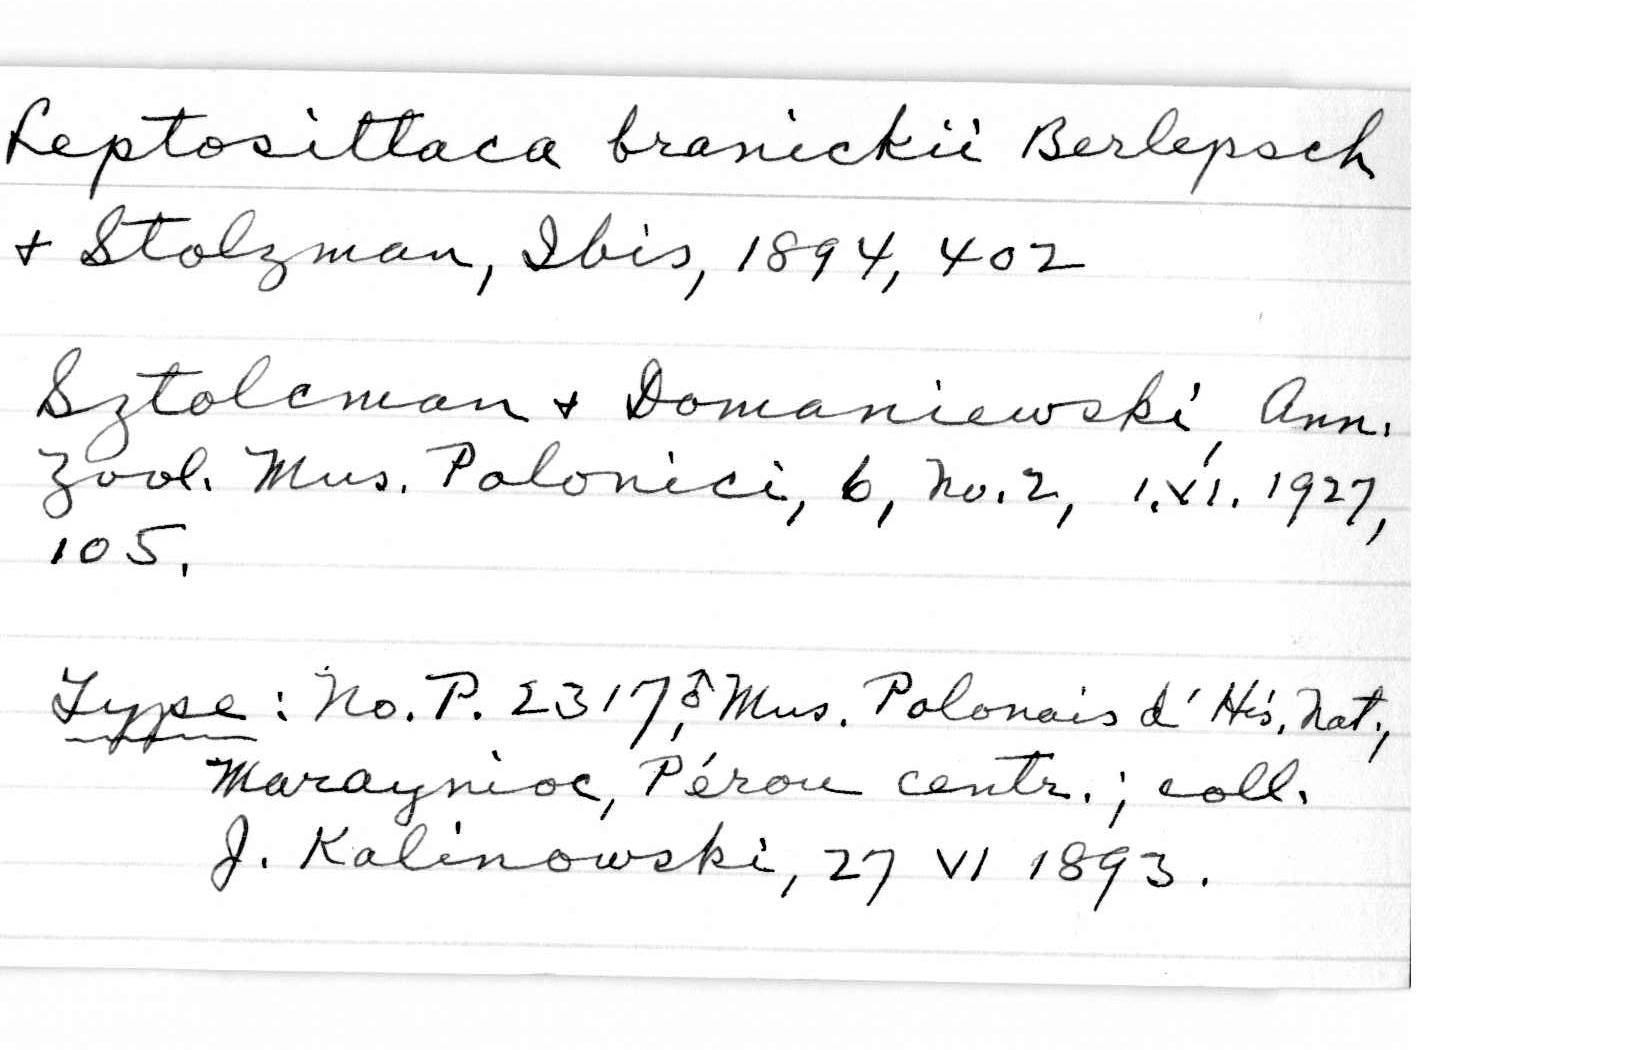 Leptosittaca branickii Berlepsch
+ Stolzman, Ibis, 1894, 402
Sztolcman + Domaniewski, Ann.
Zool. Mus. Polonici, 6, No. 2, 1.XI. 1927,
105.
Type: No. P. 2317, ♂ Mus. Polonais d'His. Nat.,
Maraynioc, Pérou centr.; coll.
J. Kalinowski, 27 VI 1893.